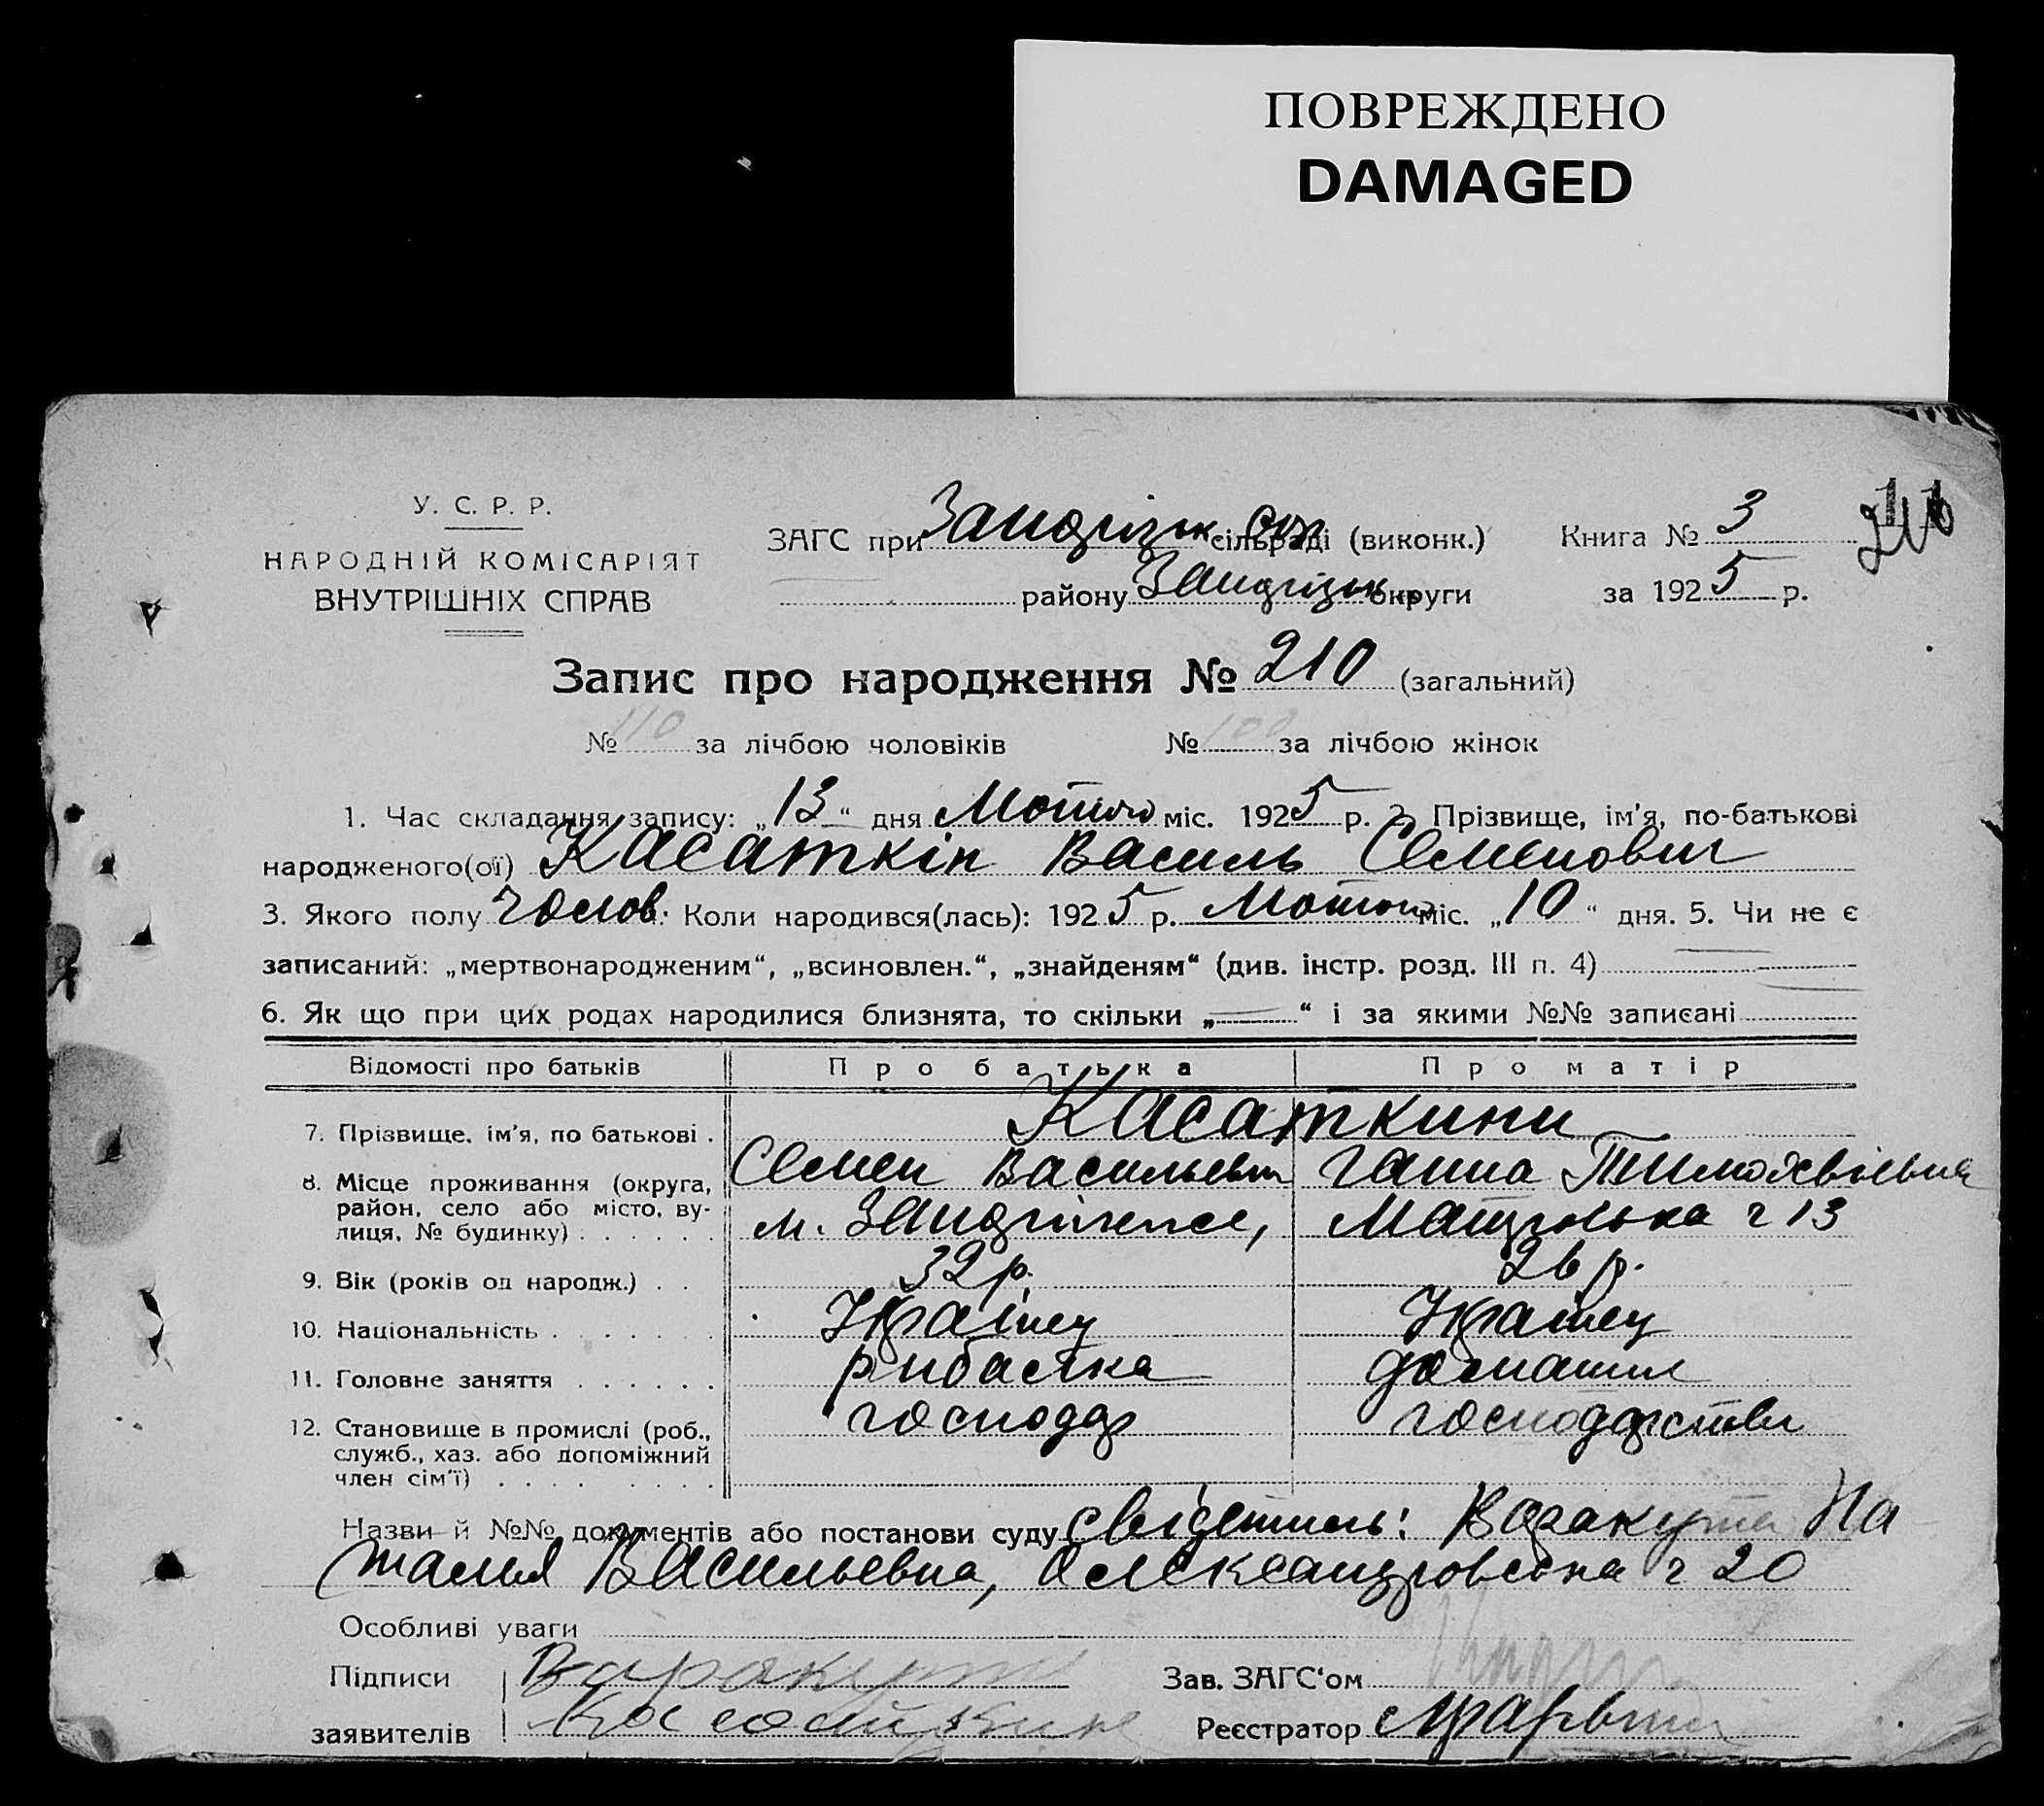 ПОВРЕЖДЕНО
DAMAGED
У. С. Р. Р.
НАРОДНІЙ КОМІСАРІЯТ
ВНУТРІШНІХ СПРАВ
ЗАГС при сільраді (виконк.)
району округи
Книга № 3
за 1925 р.
Запис про народження № 210 (загальний)
№ 110 за лічбою чоловіків № за лічбою жінок
1. Час складання запису: „13“ дня Мотого міс. 1925 р. 2. Прізвище, ім'я, по-батькові
народженого(ої) Касаткін Василь Семенович
3. Якого полу Чолов. Коли народився(лась): 1925 р. Мотого міс. „10“ дня. 5. Чи не є
записаний: „мертвонародженим“, „всиновлен.“, „знайденям“ (див. інстр. розд. III п. 4)
6. Як що при цих родах народилися близнята, то скільки „ “ і за якими №№ записані
Відомості про батьків Про батька Про матір
7. Прізвище, ім'я, по батькові . Касаткини
Семен Васильевич Ганна Тимохвіевна
8. Місце проживання (округа,
район, село або місто, ву-
лиця, № будинку) . . . . . . м. ч 13
9. Вік (років од народж.) . . 32 р. 26 р.
10. Національність . . . . . . . Українец Українец
11. Головне заняття . . . . . . рибалка домашне
12. Становище в промислі (роб.,
служб., хаз. або допоміжний
член сім'ї) . . . . . . . . . господар господарство
Назви й №№ документів або постанови суду свідетиль: Варакута На
талья Васильевна, Олександровська ч 20
Особливі уваги
Підписи Варакута
заявителів
Зав. ЗАГС'ом
Реєстратор